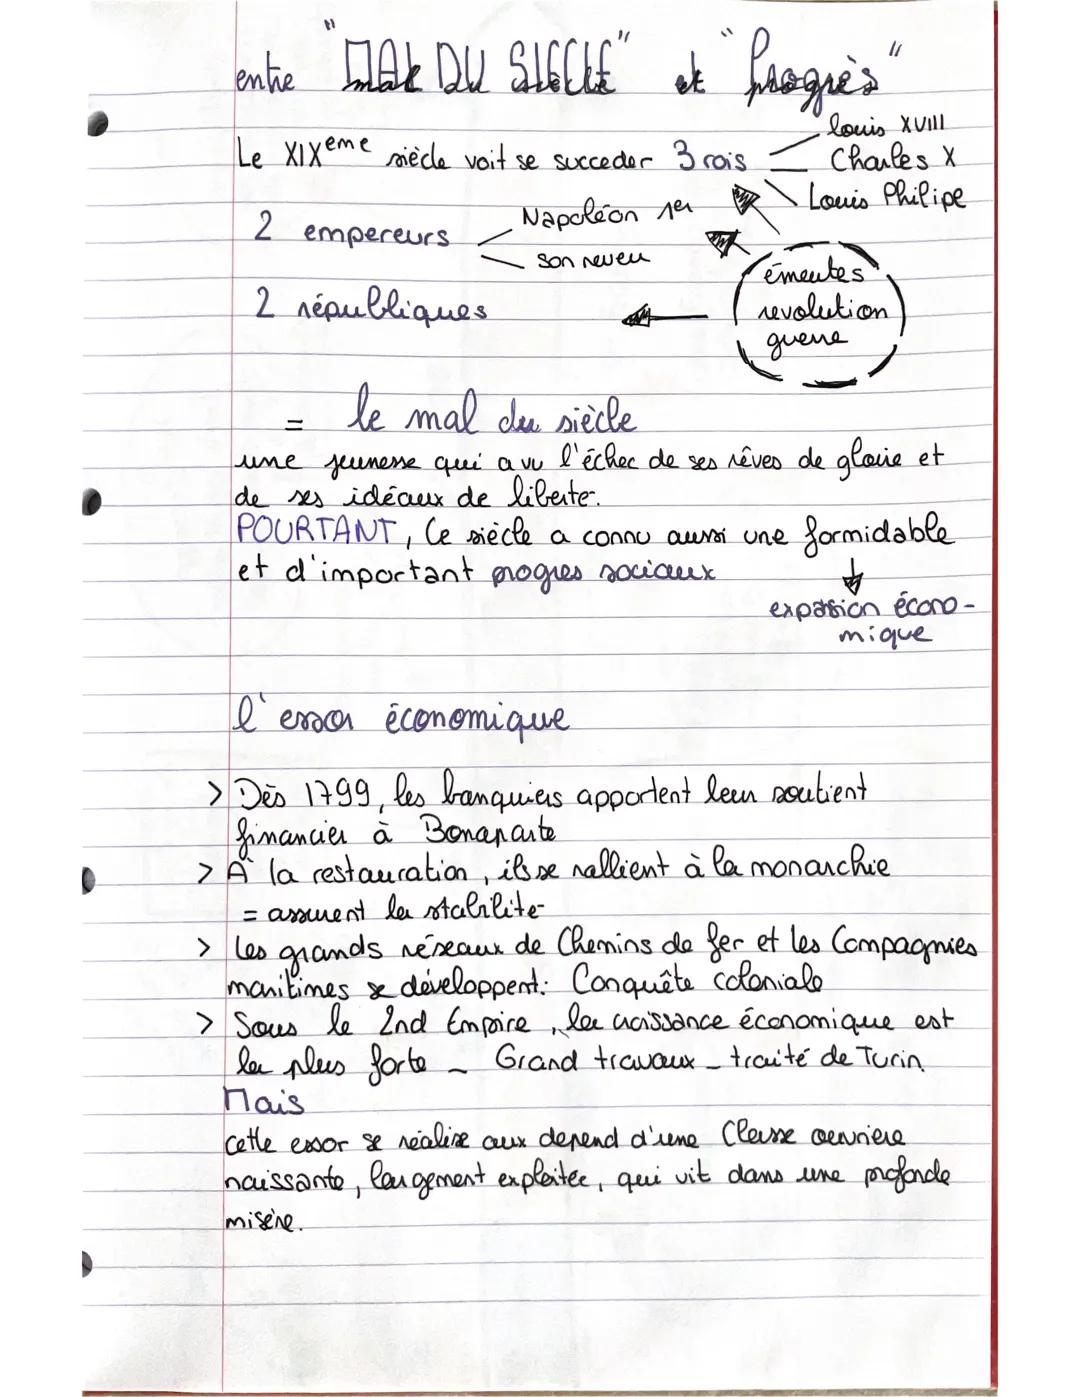 entre "MAL DU SIECLE" et "Progrès"
Le XIXeme siècle voit se succeder 3 rois
louis XVIII
Charles X
Louis Philipe
2 empereurs
Napoléon 1er
son neveu
2 républiques
émeutes
revolution
guerre
= le mal du siècle
une jeunesse qui a vu l'échec de ses rêves de gloire et
de ses idéaux de liberte.
POURTANT, Ce siècle a connu aussi une formidable
et d'important progres sociaux
expasion écono-
mique
l'essor économique
> Dès 1799, les banquiers apportent leur soutient
financier à Bonaparte
> A la restauration, ils se rallient à la monarchie
= assurent la stabilite
> Les grands réseaux de Chemins de fer et les Compagnies
maritimes se développent: Conquête coloniale
> Sous le 2nd Empire, la croissance économique est
la plus forte _ Grand travaux _ traité de Turin.
Mais
cette essor se réalise aux depend d'une Classe ouvriere
naissante, largement exploitée, qui vit dans une profonde
misère.